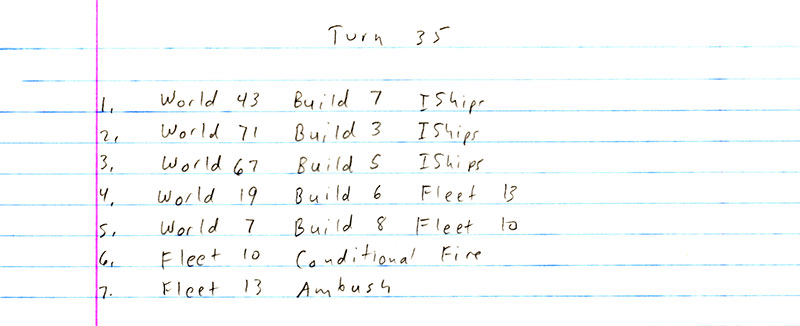 Turn 35
1. World 43 Build 7 IShips
2. World 71 Build 3 IShips
3. World 67 Build 5 IShips
4. World 19 Build 6 Fleet 13
5. World 7 Build 8 Fleet 10
6. Fleet 10 Conditional Fire
7. Fleet 13 Ambush